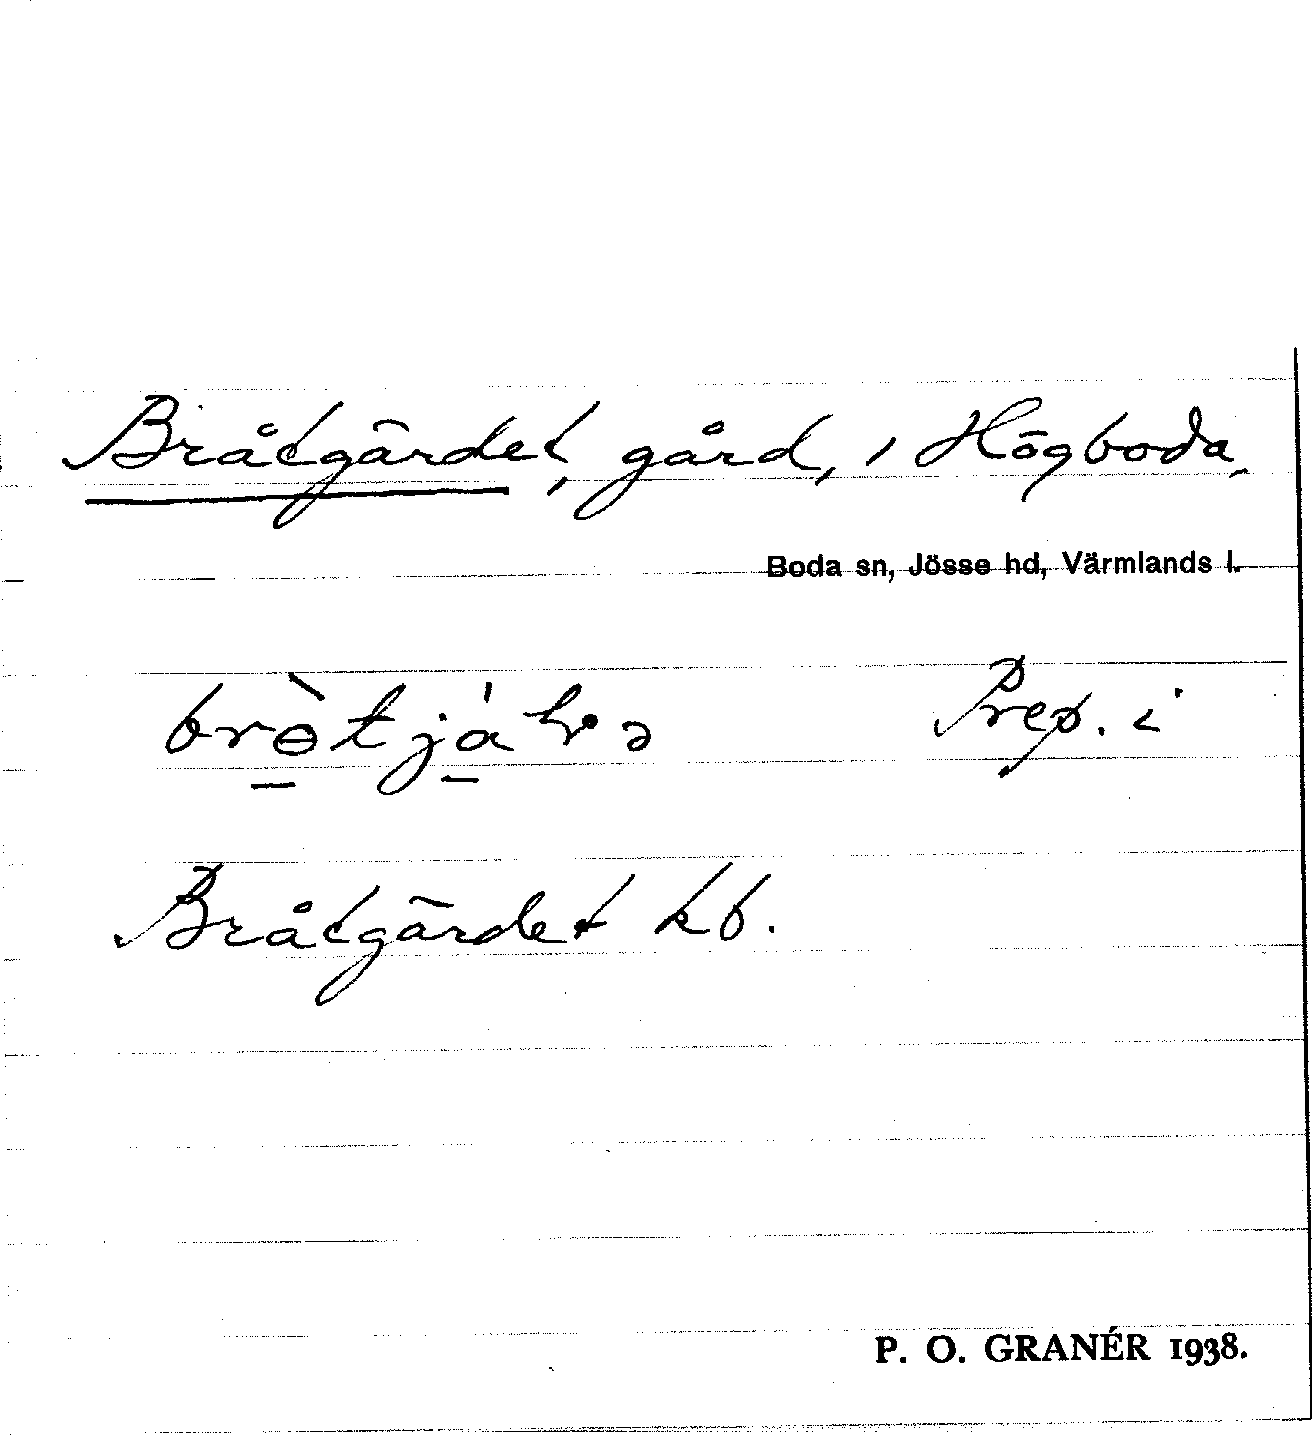 Bråtgärdet, gård, i Högboda,
Boda sn, Jösse hd, Värmlands l.
Prep. i
Bråtgärdet kb.
P. O. GRANÉR 1938.